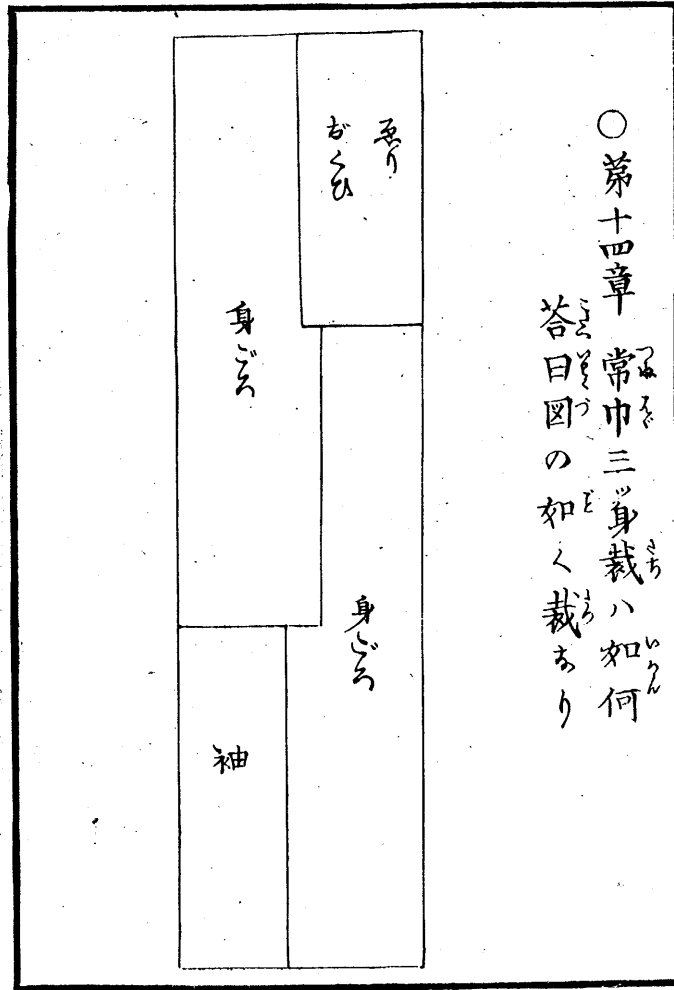 ○第十四章 常巾三ッ身裁ハ如何
答曰図の如く裁なり
ゑり
おくひ
身ごろ
身ごろ
袖